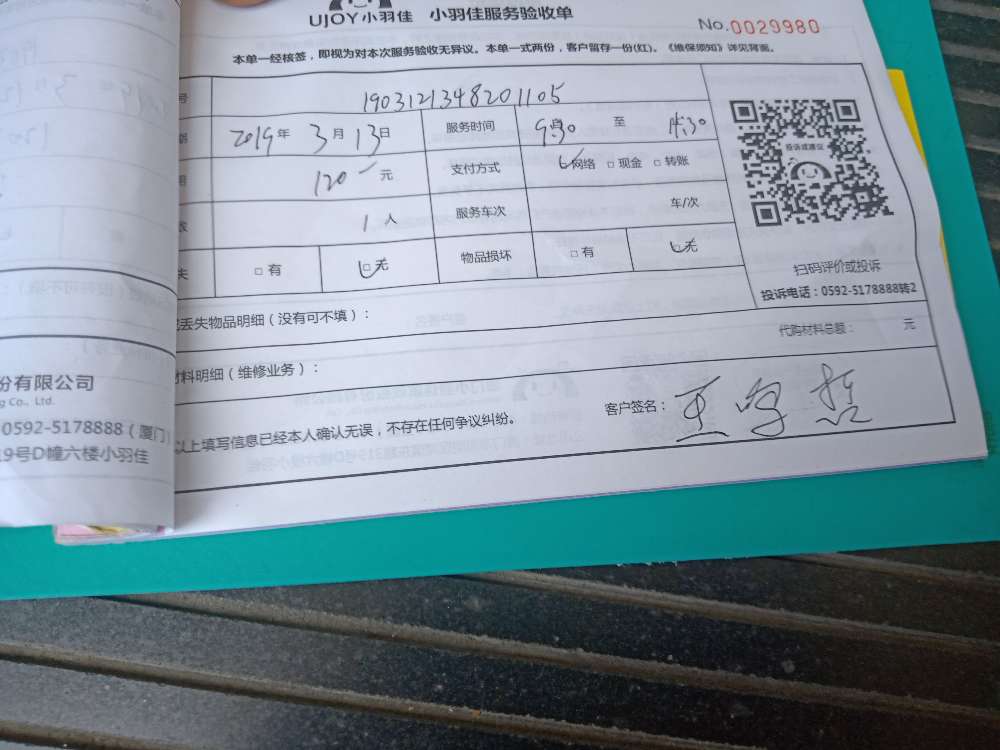 UJOY小羽佳 小羽佳服务验收单
No.0029980
本单一经核签，即视为对本次服务验收无异议。本单一式两份，客户留存一份(红)。《维保须知》详见背面。
号 1903121348201105
2019年 3月 13日 服务时间 9:30 至
120 元 支付方式 网络 □ 现金 □ 转账
1人 服务车次 车/次
失 □ 有 □ 无 物品损坏 □ 有 无
投诉或建议
扫码评价或投诉
投诉电话：0592-5178888转2
丢失物品明细（没有可不填）：
代购材料总额： 元
材料明细（维修业务）：
以上填写信息已经本人确认无误，不存在任何争议纠纷。
客户签名：
份有限公司
g Co., Ltd.
0592-5178888（厦门）
19号D幢六楼小羽佳